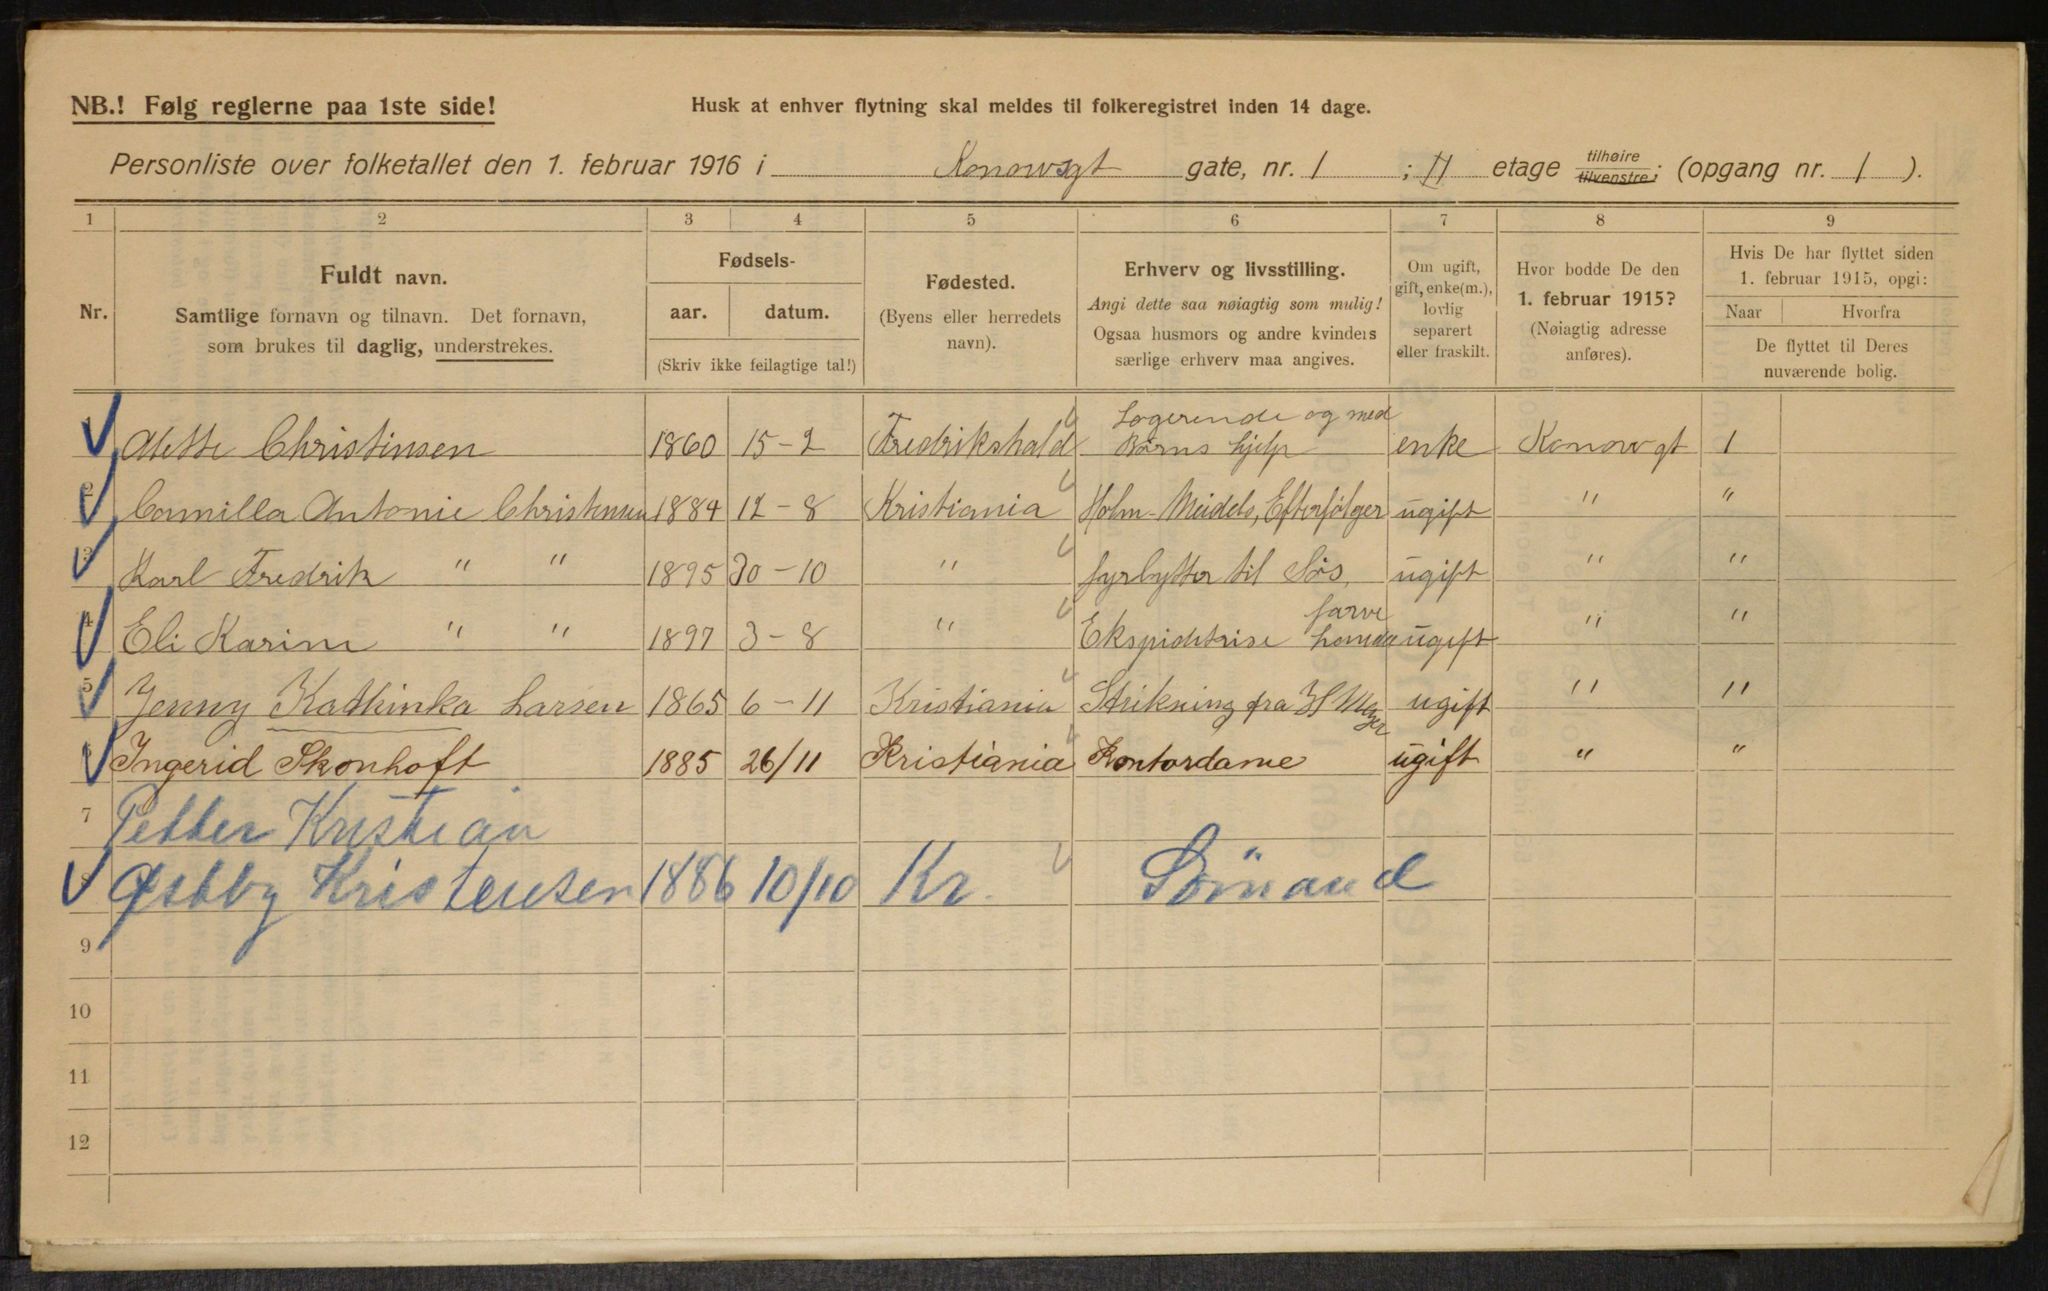 NB.! Følg reglerne paa 1ste side!
Husk at enhver flytning skal meldes til folkeregistret inden 14 dage.
Personliste over folketallet den 1. februar 1916 i Konowsgt gate, nr. 1 ; II etage tilhøire tilvenstre; (opgang nr. 1 ).
1 2 3 4 5 6 7 8 9
Nr.
Fuldt navn.
Samtlige fornavn og tilnavn. Det fornavn,
som brukes til daglig, understrekes.
Fødsels-
aar. datum.
(Skriv ikke feilagtige tal!)
Fødested.
(Byens eller herredets
navn).
Erhverv og livsstilling.
Angi dette saa nøiagtig som mulig!
Ogsaa husmors og andre kvinders
særlige erhverv maa angives.
Om ugift,
gift, enke(m.),
lovlig
separert
eller fraskilt.
Hvor bodde De den
1. februar 1915?
(Nøiagtig adresse
anføres).
Hvis De har flyttet siden
1. februar 1915, opgi:
Naar Hvorfra
De flyttet til Deres
nuværende bolig.
1 Alette Christinsen 1860 15-2 Fredrikshald Logerende og med Börns hjelp enke Konowgt 1
2 Camilla Antonie Christensen 1884 12-8 Kristiania Holm-Meidels, Efterfölger ugift " "
3 Karl Fredrik " " 1895 30-10 " fyrbytter til Sös ugift " "
4 Eli Karine " " 1897 3-8 " Ekspiditrise farve ugift " "
5 Jenny Kathinka Larsen 1865 6-11 Kristiania Strikning fra ugift " "
6 Ingerid Skonhoft 1885 26/11 Kristiania Kontordame ugift " "
7 Petter Kristian
8 Østby Kristensen 1886 10/10 Kr. Sömand
9
10
11
12